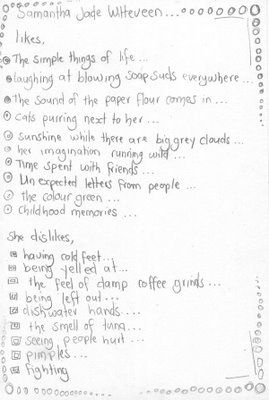 Samantha Jade Witteveen...
likes,
The simple things of life...
laughing at blowing soap suds everywhere...
The sound of the paper flour comes in...
Cats purring next to her...
sunshine while there are big grey clouds...
her imagination running wild...
Time spent with friends...
Unexpected letters from people...
the colour green...
Childhood memories...
She dislikes,
having cold feet...
being yelled at...
the feel of damp coffee grinds...
being left out...
dishwater hands....
the smell of tuna...
seeing people hurt...
pimples...
fighting